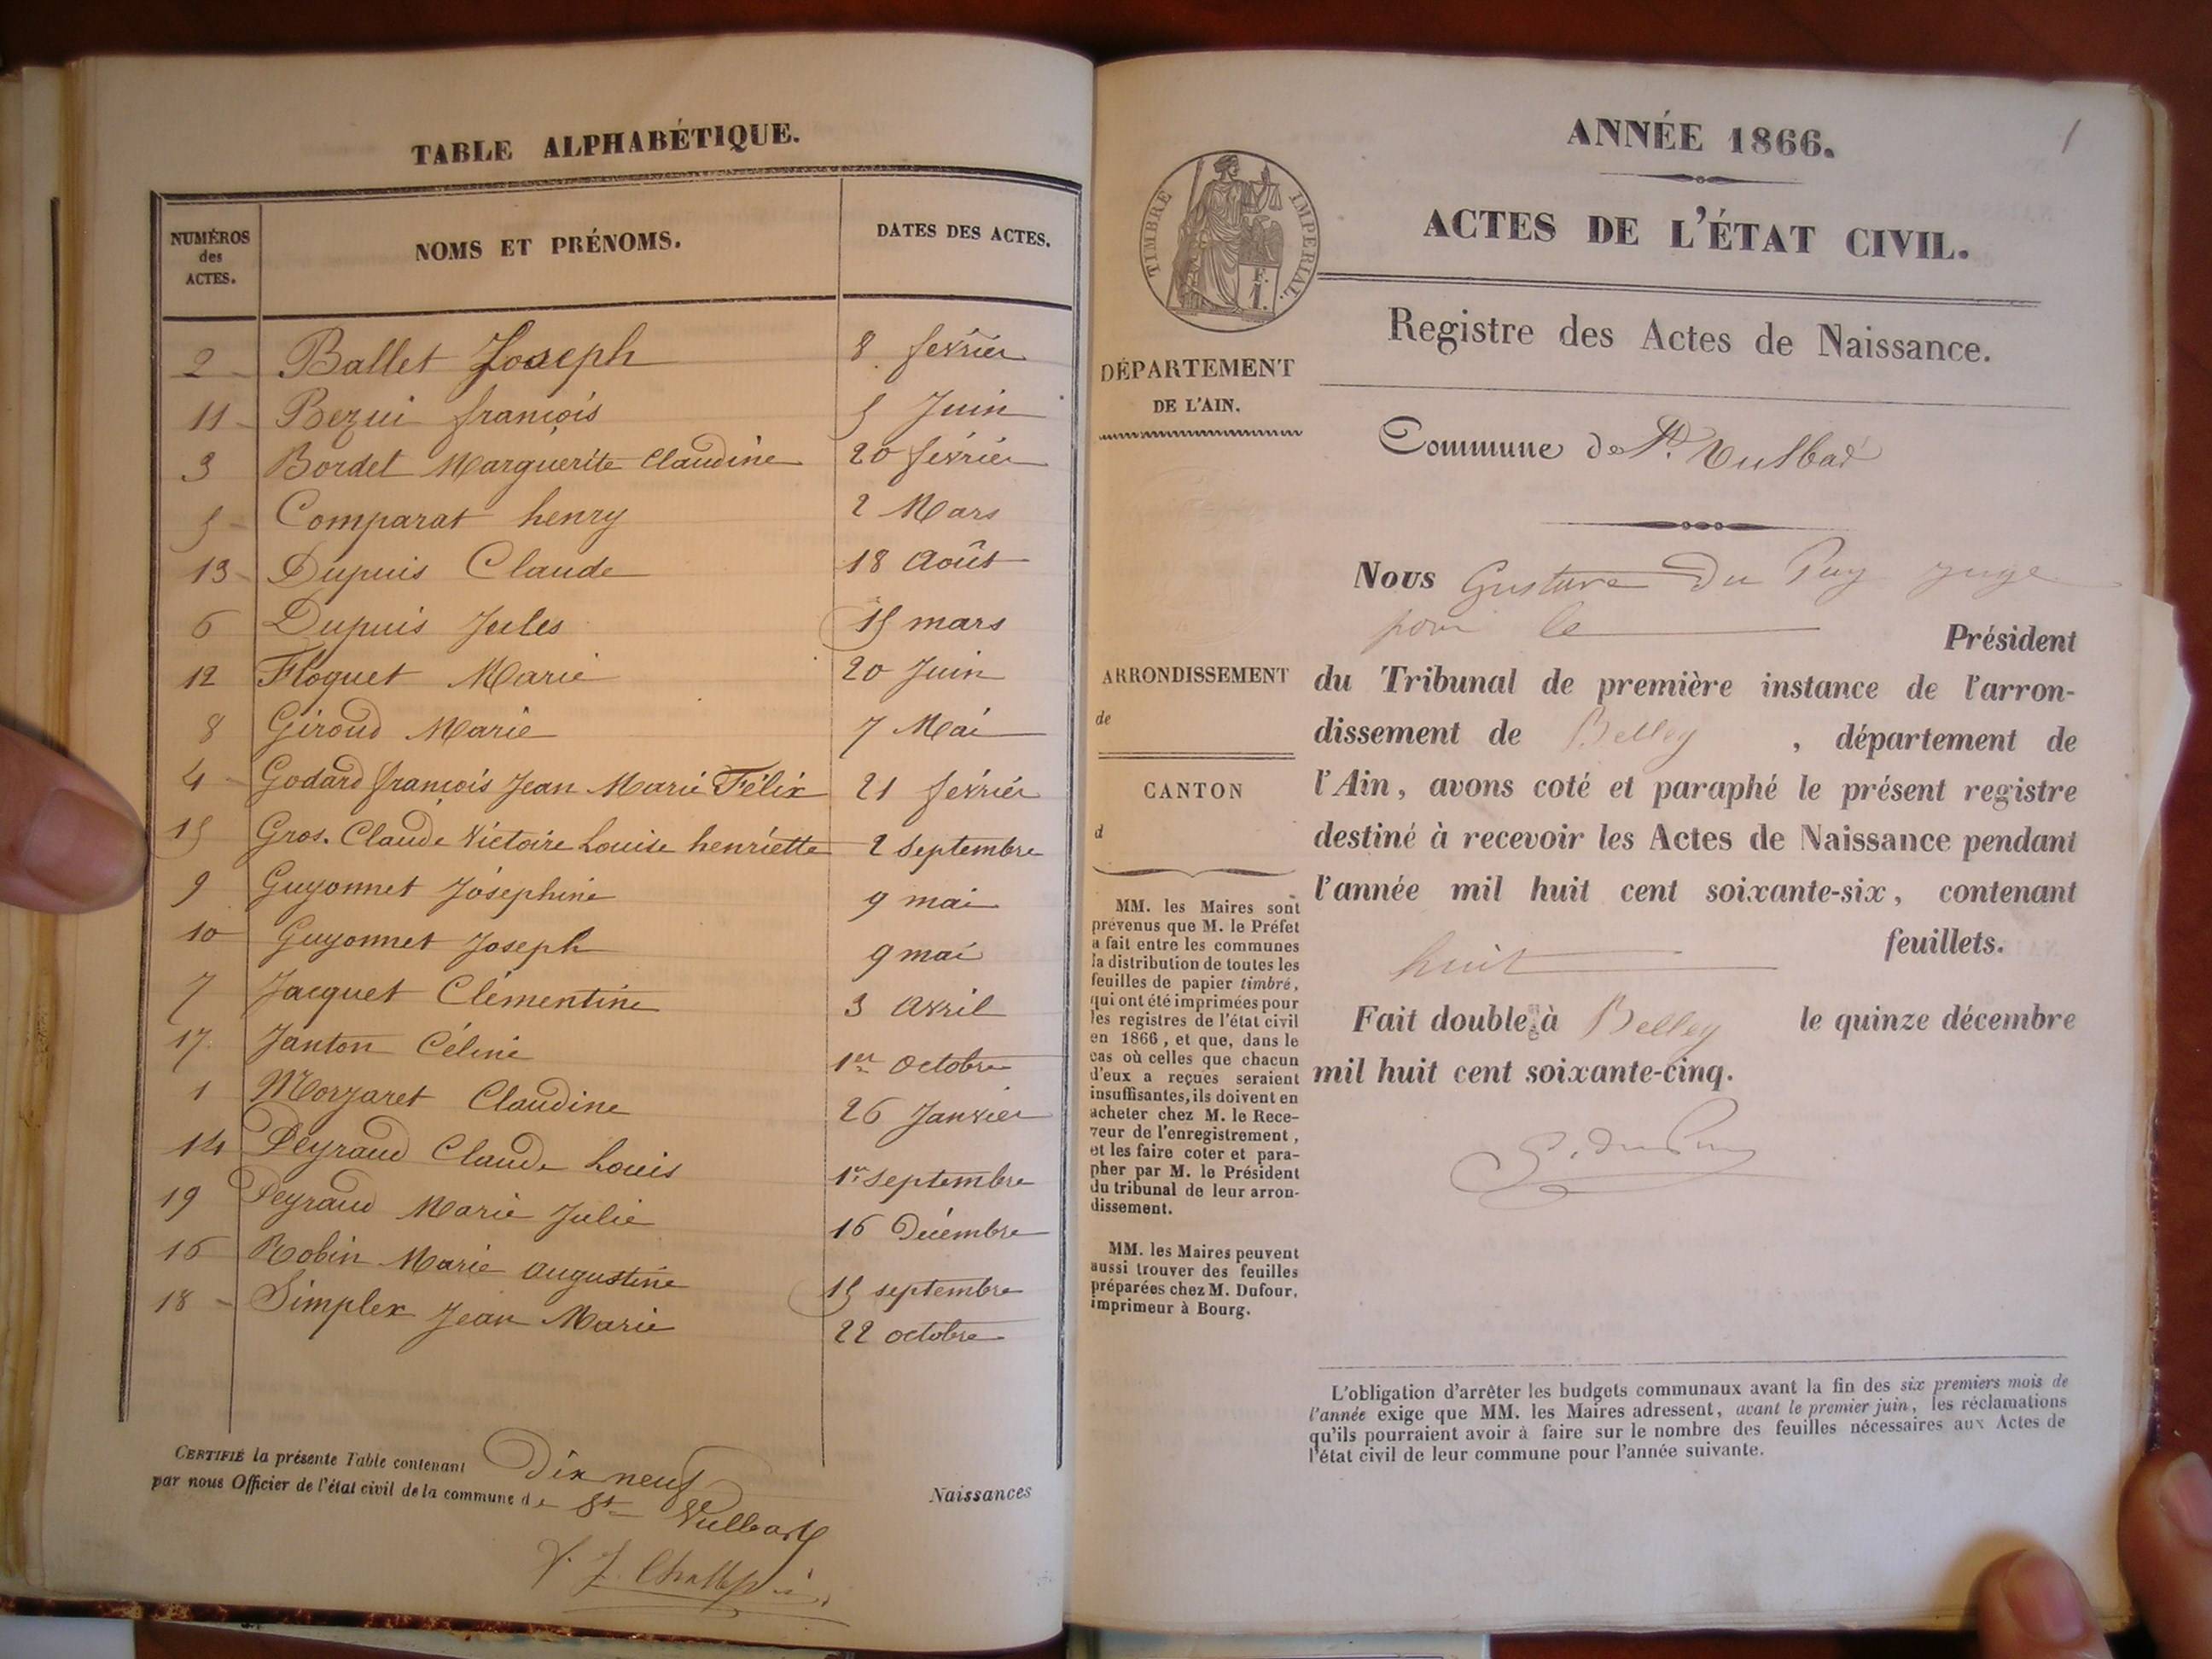 TABLE ALPHABÉTIQUE.
NUMÉROS des ACTES.
NOMS ET PRÉNOMS.
DATES DES ACTES.
2 Ballet Joseph 8 février
11 Bezui françois 5 Juin
3 Bordet Marguerite Claudine 20 février
5 Comparat henry 2 Mars
13 Dupuis Claude 18 Août
6 Dupuis Jules 15 mars
12 Floquet Marie 20 Juin
8 Giroud Marie 7 Mai
4 Godard françois Jean Marie Félix 21 février
15 Gros. Claude Victoire Louise henriette 2 septembre
9 Guyonnet Joséphine 9 mai
10 Guyonnet Joseph 9 mai
7 Jacquet Clémentine 3 avril
17 Janton Céline 1er octobre
1 Morzaret Claudine 26 Janvier
14 Peyraud Claude Louis 1er septembre
19 Peyraud Marie Julie 16 Décembre
16 Robin Marie augustine 15 septembre
18 Simplex Jean Marie 22 octobre
CERTIFIÉ la présente Table contenant Dix neuf Naissances
par nous Officier de l'état civil de la commune de St Vulbas
ANNÉE 1866.
1
ACTES DE L'ÉTAT CIVIL.
TIMBRE IMPERIAL.
1 F.
Registre des Actes de Naissance.
DÉPARTEMENT
DE L'AIN.
Commune de St. Vulbas
Nous Gustave Du Puy juge
pour le Président
ARRONDISSEMENT
de
CANTON
d
du Tribunal de première instance de l'arron-
dissement de Belley , département de
l'Ain, avons coté et paraphé le présent registre
destiné à recevoir les Actes de Naissance pendant
l'année mil huit cent soixante-six, contenant
huit feuillets.
Fait double à Belley le quinze décembre
mil huit cent soixante-cinq.
G. Du Puy
MM. les Maires sont
prévenus que M. le Préfet
a fait entre les communes
la distribution de toutes les
feuilles de papier timbré,
qui ont été imprimées pour
les registres de l'état civil
en 1866, et que, dans le
cas où celles que chacun
d'eux a reçues seraient
insuffisantes, ils doivent en
acheter chez M. le Rece-
veur de l'enregistrement,
et les faire coter et para-
pher par M. le Président
du tribunal de leur arron-
dissement.
MM. les Maires peuvent
aussi trouver des feuilles
préparées chez M. Dufour,
imprimeur à Bourg.
L'obligation d'arrêter les budgets communaux avant la fin des six premiers mois de
l'année exige que MM. les Maires adressent, avant le premier juin, les réclamations
qu'ils pourraient avoir à faire sur le nombre des feuilles nécessaires aux Actes de
l'état civil de leur commune pour l'année suivante.